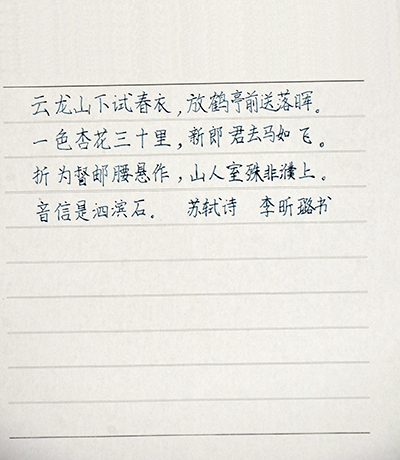 云龙山下试春衣，放鹤亭前送落晖。
一色杏花三十里，新郎君去马如飞。
折为督邮腰悬作，山人室殊非濮上。
音信是泗滨石. 苏轼诗 李昕璐书